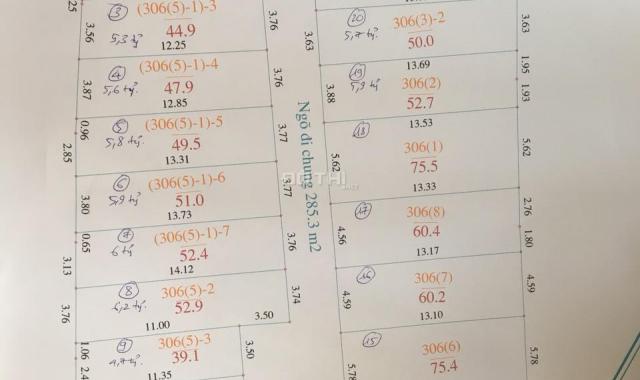 .25
3
(306(5)-1)-3
44.9
5,3 tỷ
12.25
3.56
3.76
4
(306(5)-1)-4
47.9
5,6 tỷ
12.85
3.87
3.76
0.96
5
(306(5)-1)-5
49.5
5,8 tỷ
13.31
2.85
3.77
6
(306(5)-1)-6
51.0
5,9 tỷ
13.73
3.80
3.77
0.65
7
(306(5)-1)-7
52.4
6 tỷ
14.12
3.13
3.76
8
306(5)-2
52.9
6,2 tỷ
11.00
3.50
3.76
3.74
9
306(5)-3
39.1
4,7 tỷ
11.35
1.06
2.4
3.50
Ngõ đi chung 285.3 m2
20
306(3)-2
50.0
5,7 tỷ
13.69
3.63
3.63
1.95
19
306(2)
52.7
5,9 tỷ
13.53
3.88
1.93
18
306(1)
75.5
13.33
5.62
5.62
17
306(8)
60.4
13.17
4.56
2.76
1.80
16
306(7)
60.2
13.10
4.59
4.59
15
306(6)
75.4
5.78
5.78